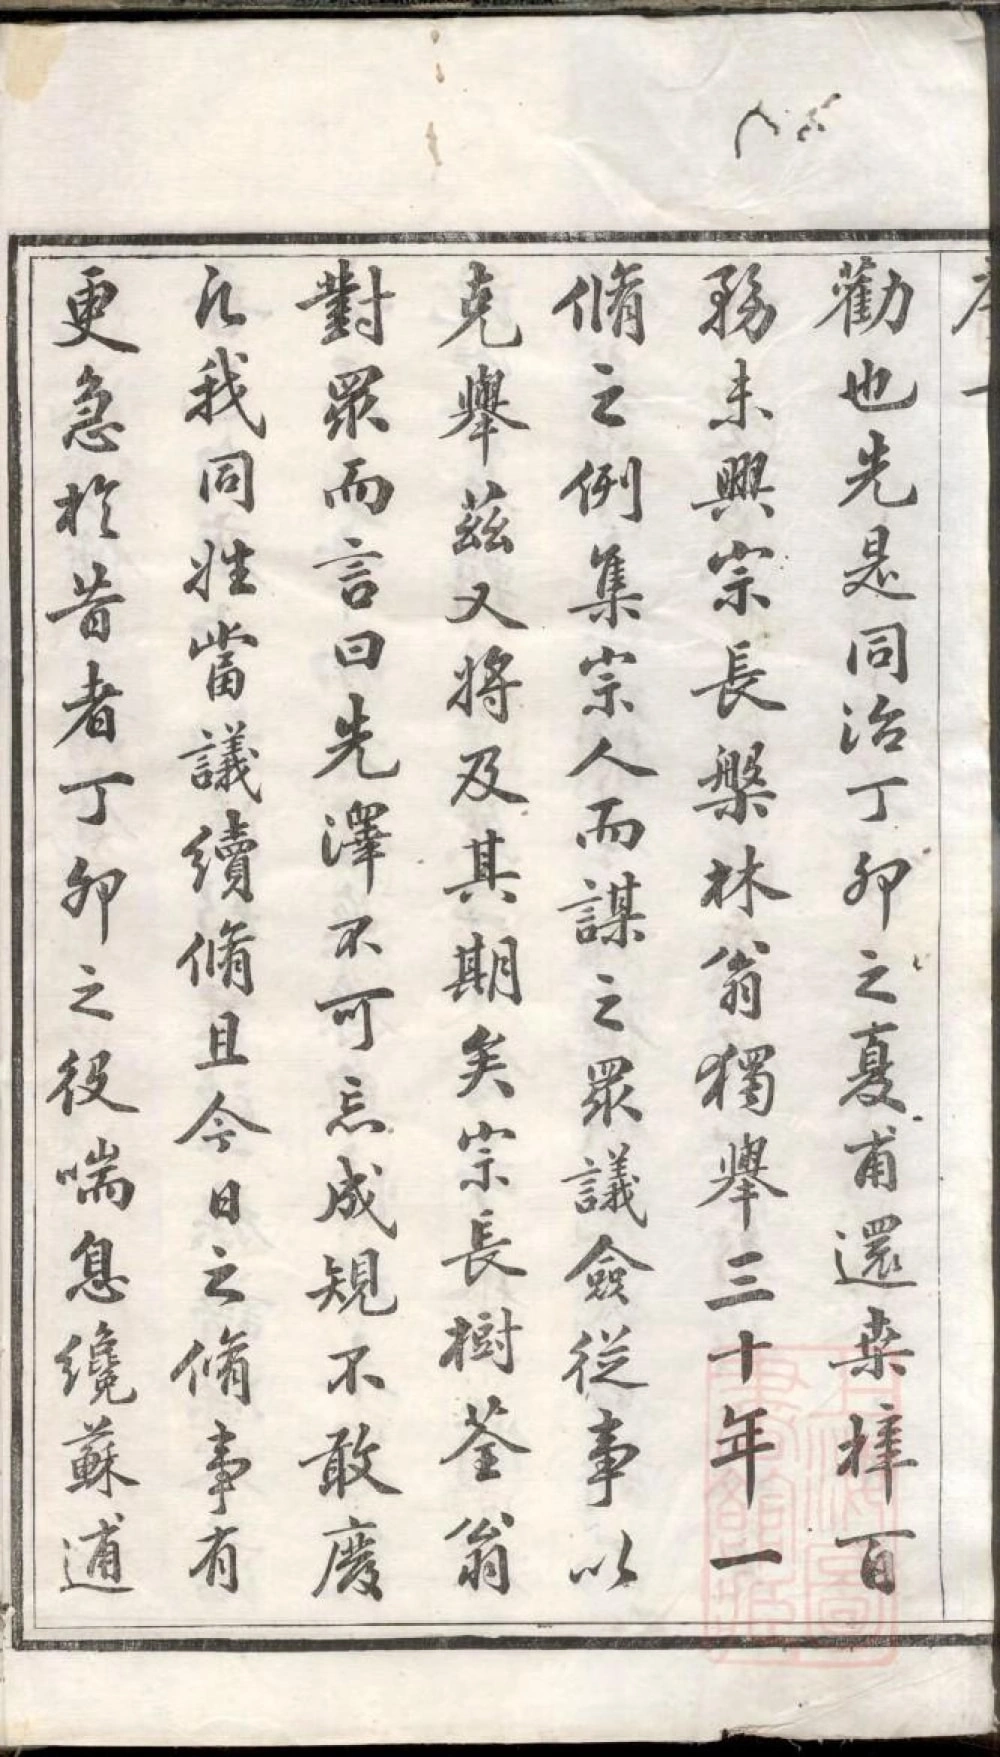 勸也先是同治丁卯之夏甫還桒梓百
務未興宗長槃林翁獨舉三十年一
脩之例集宗人而謀之眾議僉從事以
克舉茲又將及其期矣宗長樹荃翁
對眾而言曰先澤不可忘成規不敢廢
凡我同姓當議續脩且今日之脩事有
更急於昔者丁卯之役喘息纔蘇逋